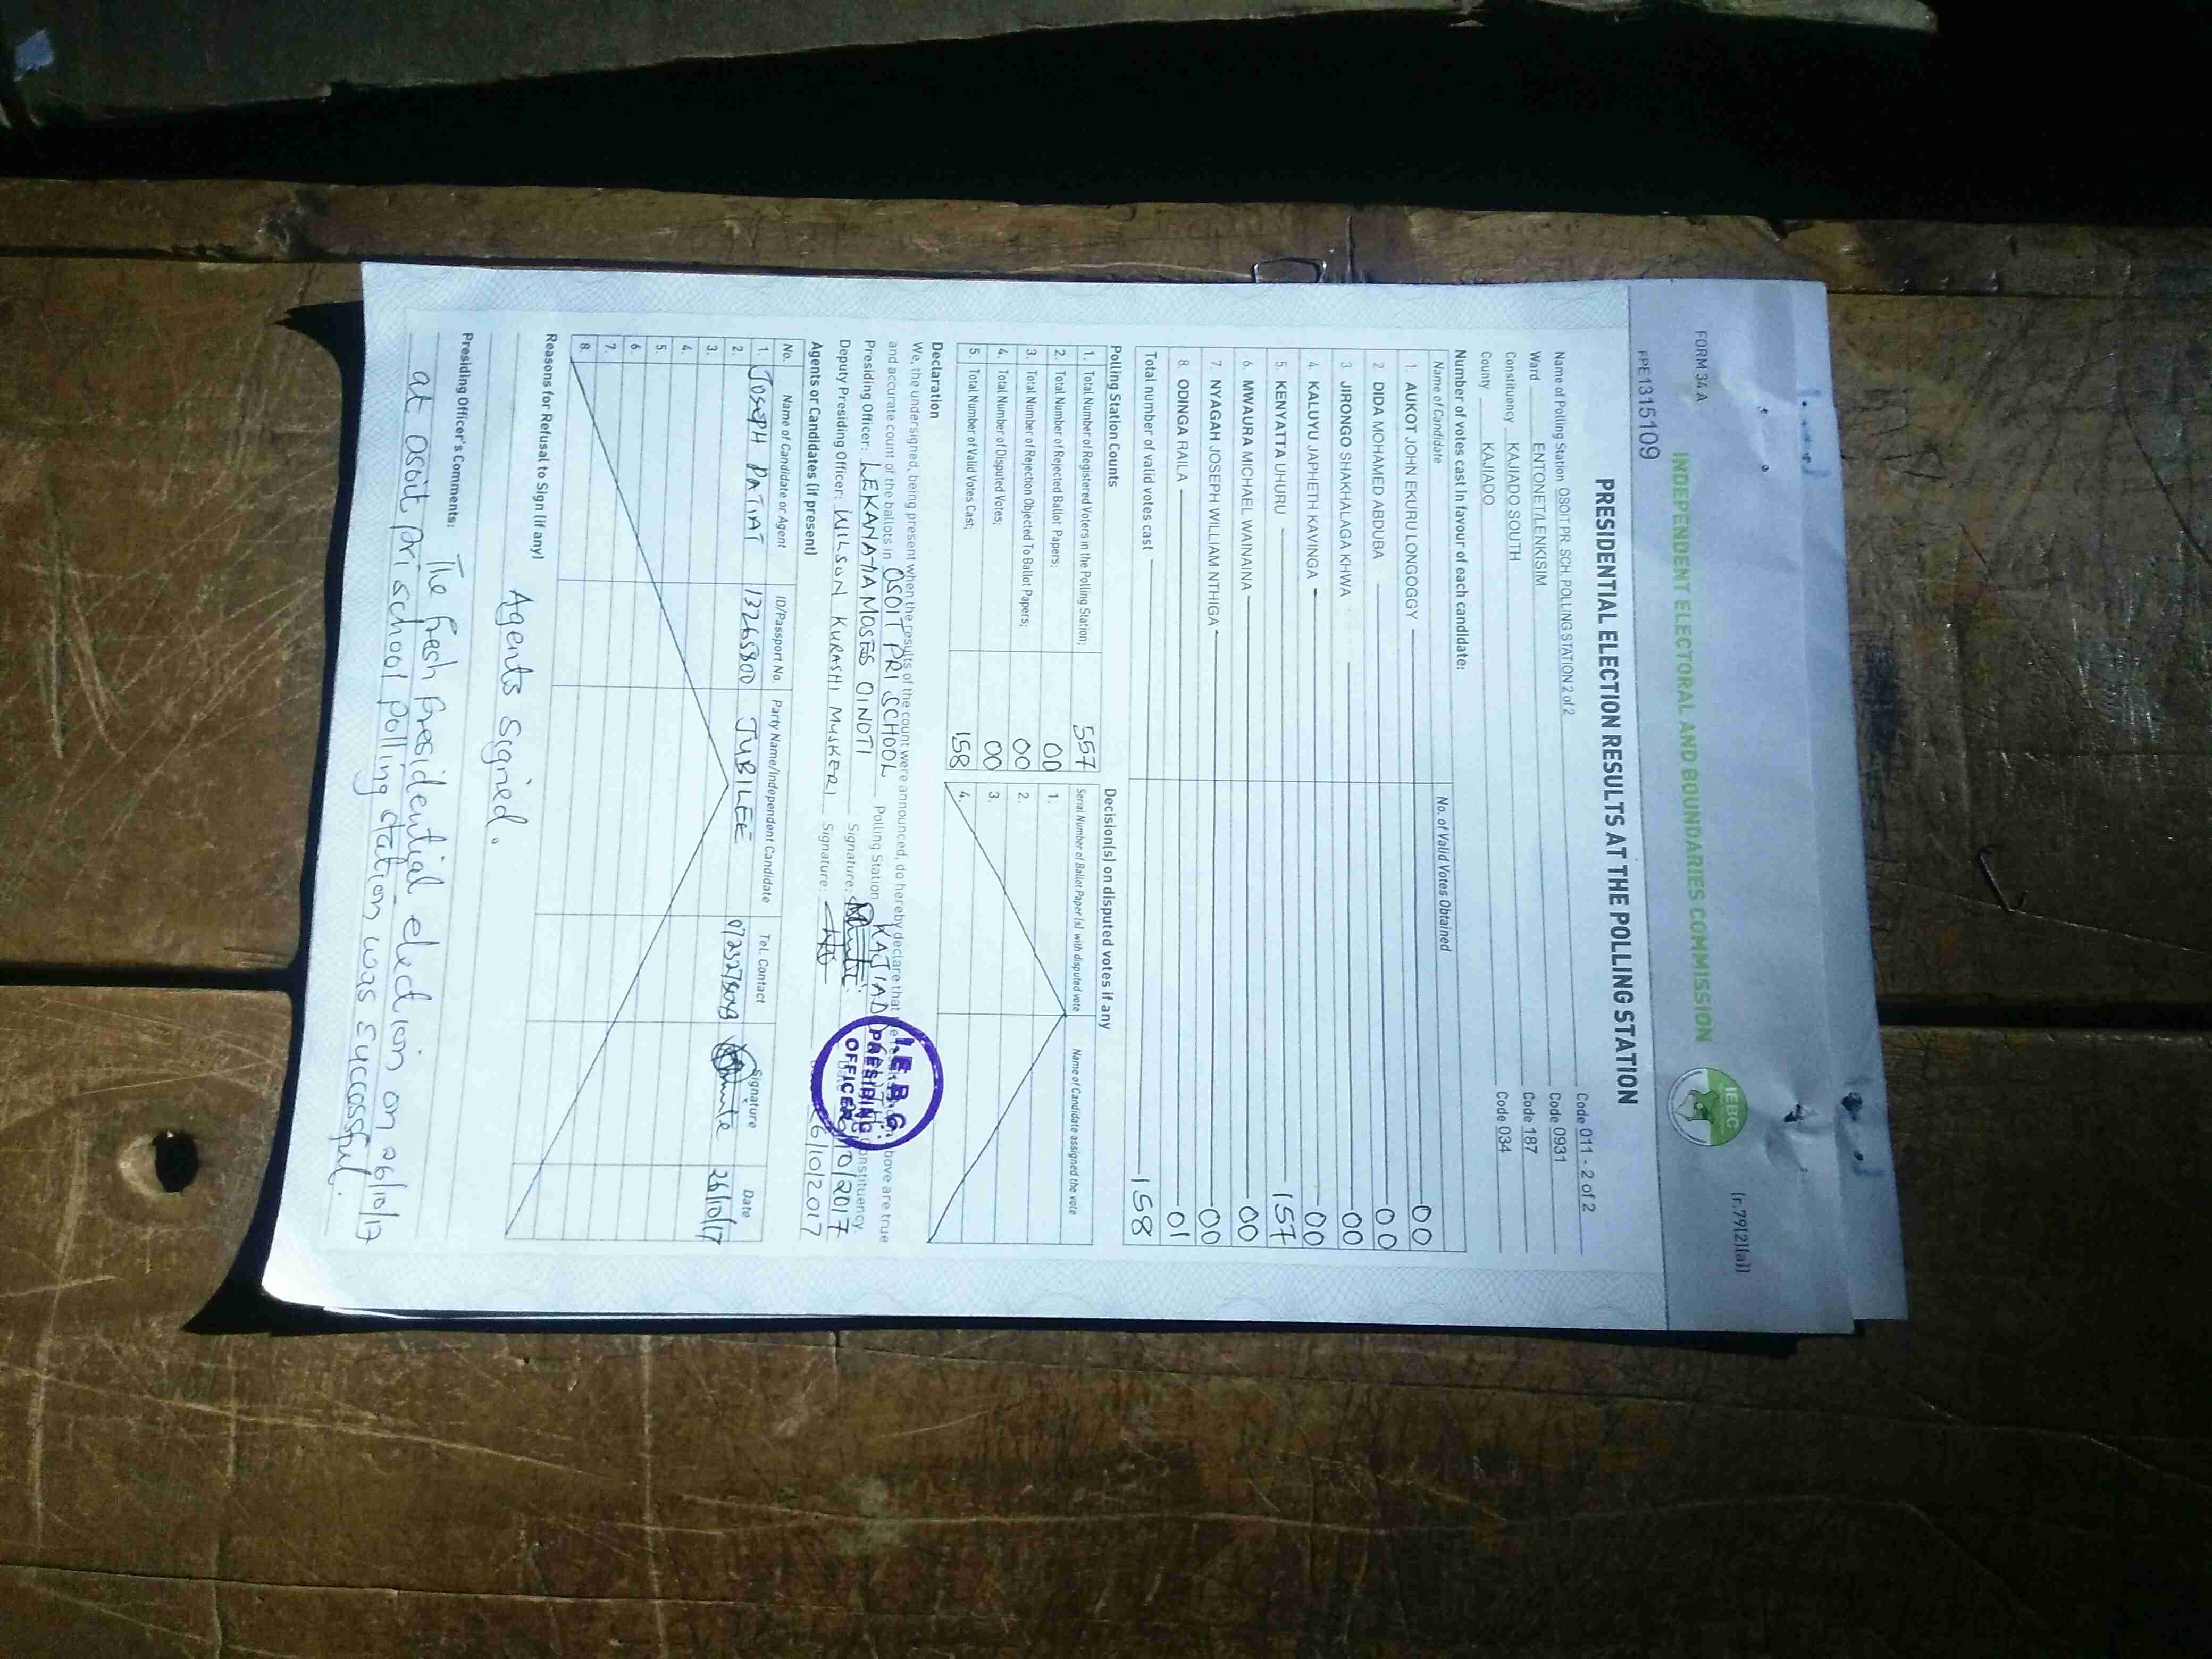 FORM 34 A
(r.79(2)(a))
INDEPENDENT ELECTORAL AND BOUNDARIES COMMISSION
IEBC
FPE1315109
PRESIDENTIAL ELECTION RESULTS AT THE POLLING STATION
Name of Polling Station OSOIT PR. SCH. POLLING STATION 2 of 2 Code 011 - 2 of 2
Ward ENTONET/LENKISIM Code 0931
Constituency KAJIADO SOUTH Code 187
County KAJIADO Code 034
Number of votes cast in favour of each candidate:
Name of Candidate No. of Valid Votes Obtained
1. AUKOT JOHN EKURU LONGOGGY 00
2 DIDA MOHAMED ABDUBA 00
3 JIRONGO SHAKHALAGA KHWA 00
4. KALUYU JAPHETH KAVINGA 00
5 KENYATTA UHURU 157
6. MWAURA MICHAEL WAINAINA 00
7. NYAGAH JOSEPH WILLIAM NTHIGA 00
8. ODINGA RAILA 01
Total number of valid votes cast 158
Polling Station Counts
1. Total Number of Registered Voters in the Polling Station; 557
2. Total Number of Rejected Ballot Papers; 00
3. Total Number of Rejection Objected To Ballot Papers; 00
4. Total Number of Disputed Votes; 00
5. Total Number of Valid Votes Cast; 158
Decision(s) on disputed votes if any
Serial Number of Ballot Paper(s) with disputed vote Name of Candidate assigned the vote
1.
2.
3.
4.
Declaration
We, the undersigned, being present when the results of the count were announced, do hereby declare that the above are true
and accurate count of the ballots in OSOIT PRI SCHOOL Polling Station KAJIADO Constituency.
Presiding Officer: LEKANATIA MOSES OINOTI Signature: /10/2017
Deputy Presiding Officer: WILSON KURASHI MUSKERI Signature: 26/10/2017
I.E.B.C.
PRESIDING
OFFICER
Agents or Candidates (if present)
No. Name of Candidate or Agent ID/Passport No. Party Name/Independent Candidate Tel. Contact Signature Date
1. JOSEPH PATIAT 13265800 JUBILEE 26/10/17
2.
3.
4.
5.
6.
7.
8.
Reasons for Refusal to Sign (if any)
Agents signed.
Presiding Officer's Comments: The fresh presidential election on 26/10/17
at osoit pri school polling station was successful.